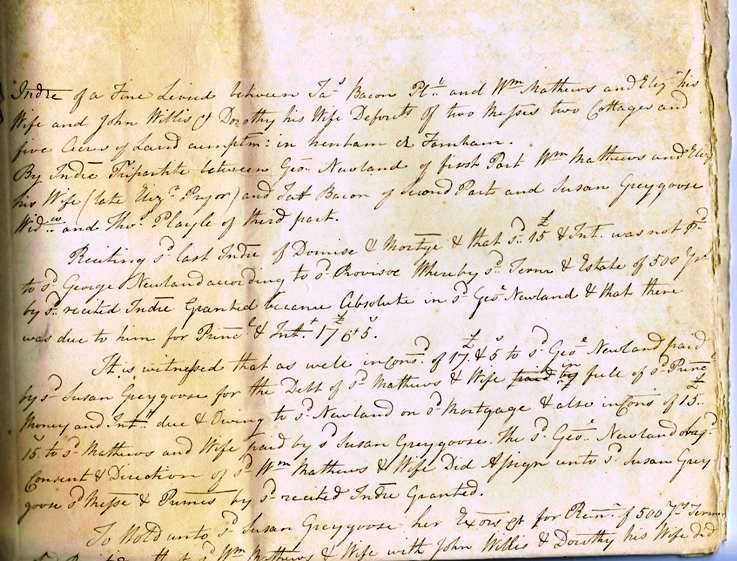 Indre of a Fine Levied between Jas Bacon Plt and Wm Mathews and Elizth his
Wife and John Willis & Dorothy his Wife Deforcts of two Messes two Cottages and
five Acres of Land cum ptin: in henham & Farnham.
By Indre Tripartite between Geo. Newland of first Part Wm Mathews and Eliz
his Wife (late Elizth Pryor) and Jas Bacon of Second Part and Susan Greygoose
Widow and Thos Playle of third part.
Reciting sd last Indre of Demise & Mortge & that sd £15 & Int. was not pd
to sd George Newland according to sd Provisoe Whereby sd Term & Estate of 500 Yrs
by sd recited Indre Granted became Absolute in sd Geo. Newland & that there
was due to him for Princl & Intt £17 & 5s.
It is witnessed that as well in Cons. of £17 & 5s to sd Geo. Newland paid
by sd Susan Greygoose for the Debt of sd Mathews & Wife paid by in full of sd Princ
Money and Intt due & Owing to sd Newland on sd Mortgage & also in Cons of £13
15s to sd Mathews and Wife paid by sd Susan Greygoose. The sd Geo. Newland
Consent & Direction of sd Wm Mathews & Wife Did Assign unto sd Susan Grey
goose sd Messe & Premes by sd recited Indre Granted.
To Hold unto sd Susan Greygoose her Exors &c for Remr of 500 Yrs Term
that sd Wm Mathews & Wife with John Willis & Dorothy his Wife did